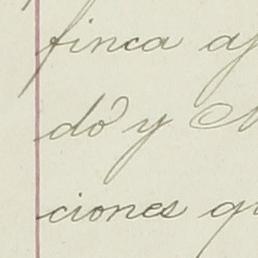 finca
do y
ciones